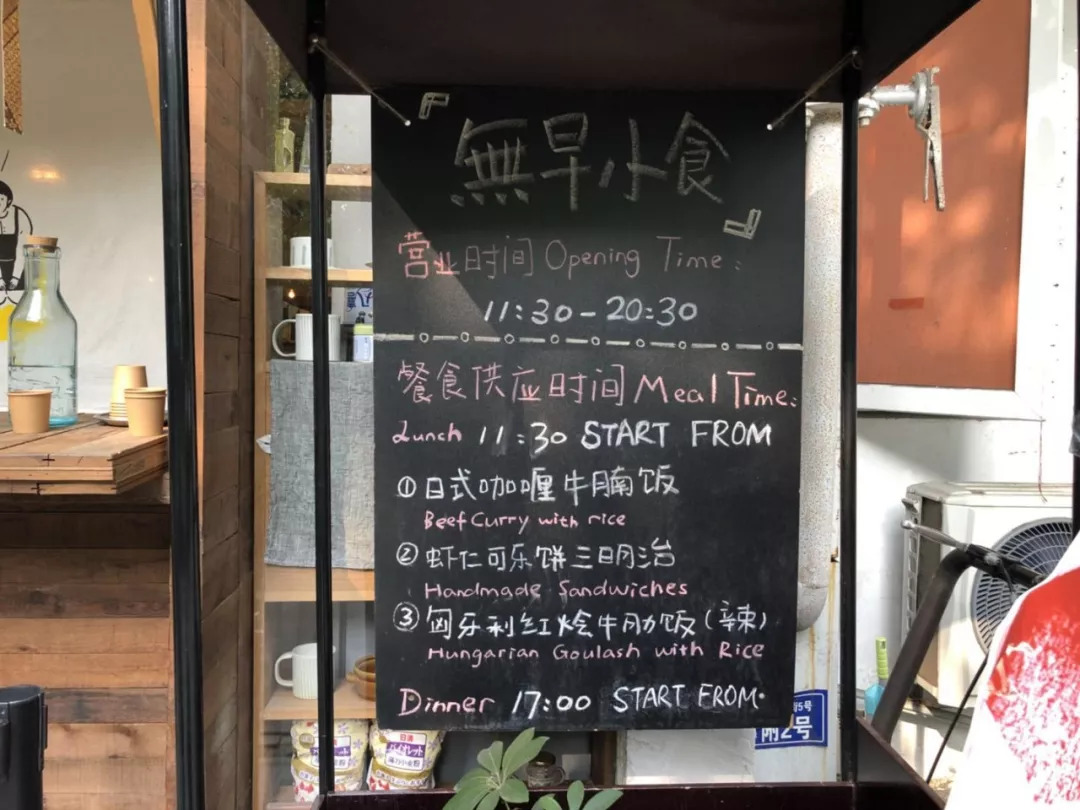 『無早小食』
营业时间 Opening Time:
11:30-20:30
餐食供应时间 Meal Time:
Lunch 11:30 START FROM
①日式咖喱牛腩饭
Beef Curry with rice
②虾仁可乐饼三明治
Handmade Sandwiches
③匈牙利红烩牛肋饭(辣)
Hungarian Goulash with Rice
Dinner 17:00 START FROM.
附2号
日清
バイオレット